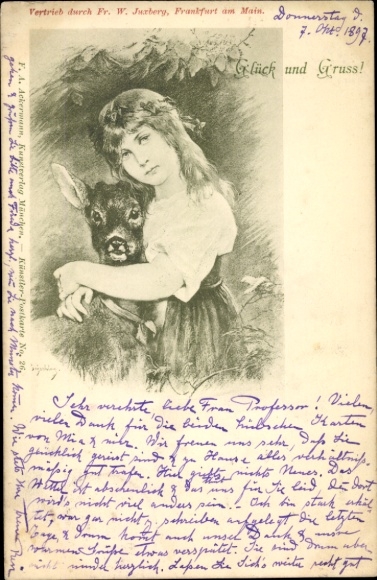 Vertrieb durch Fr. W. Juxberg, Frankfurt am Main.
Donnerstag d.
7. Okt. 1897.
Glück und Gruss!
F. A. Ackermann, Kunstverlag München. Künstler-Postkarte No. 26.
Sehr verehrte, liebe Frau Professor! Vielen,
vielen Dank für die beiden hübschen Karten
von Max & mir. Wir freuen uns sehr, daß Sie
glücklich gereist sind & zu Hause alles verhältnis-
mäßig gut trafen. Hier giebts nichts Neues. Das
Wetter ist abscheulich & das für Sie dort
wird's nicht viel anders sein. Ich bin stark erkäl-
tet, war gar nicht z. schreiben aufgelegt die letzten
Tage & darum kommt auch unser Dank & unsre
warmen Grüße etwas verspätet. Sie sind darum aber
nicht minder herzlich. Lassen Sie sich's recht gut
gehen & grüßen Sie bitte auch